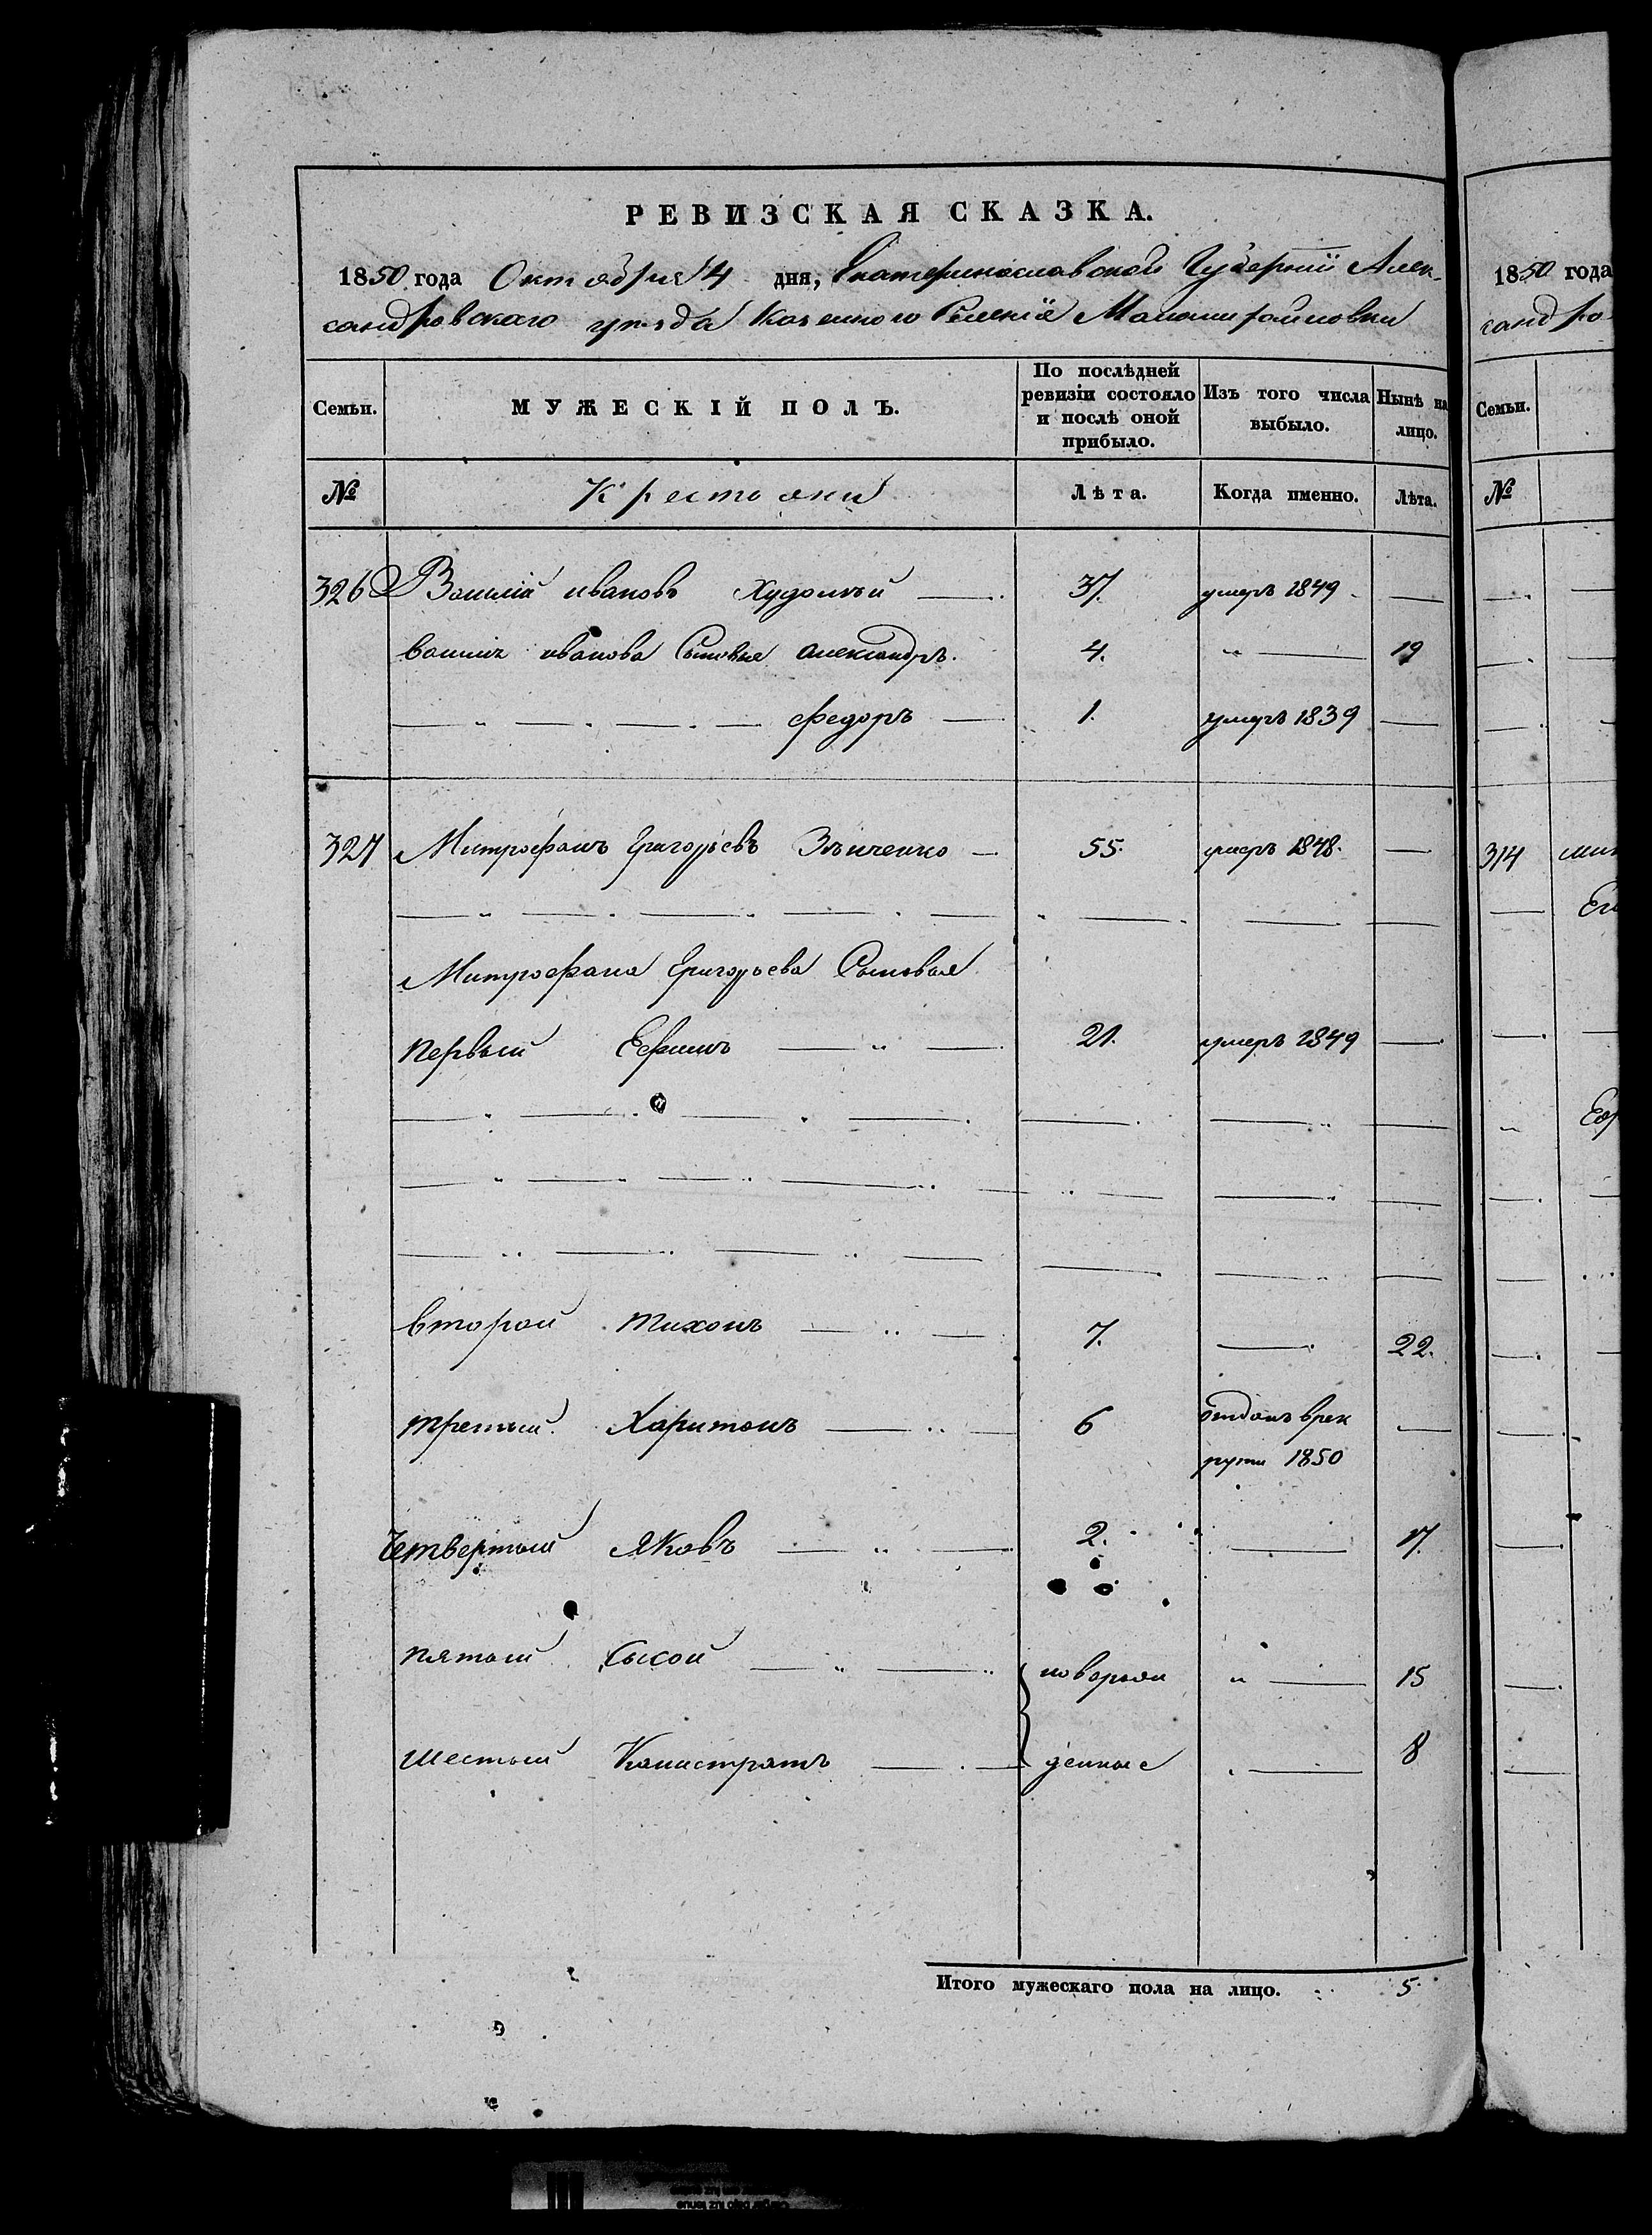 РЕВИЗСКАЯ СКАЗКА.
1850 года Октября 4 дня, Екатеринославской Губернии Алек-
сандровского уезда Казенного Селенія Маломихайловки
Семьи.
МУЖЕСКІЙ ПОЛЪ.
По послѣдней ревизіи состояло и послѣ оной прибыло.
Изъ того числа выбыло.
Нынѣ на лицо.
№
Крестьяни
Лѣта.
Когда именно.
Лѣта.
326 Василій ивановъ Худолѣй 37. умеръ 1849
Василія иванова Сыновья Александръ. 4. 19
федоръ 1. умеръ 1839
327 Митрофанъ Григорьевъ Зѣнченко 55. умеръ 1848.
Митрофана Григорьева Сыновья
первый Ефимъ 21. умеръ 1849
второй Тихонъ 7. 22.
третый Харитонъ 6 отданъ врек
руты 1850
Четвертый Яковъ 2. 17.
пятый Сысой новорож 15
шестый Каластратъ денные 8
Итого мужескаго пола на лицо. 5.
1850 года
сандро
Семьи.
№
314